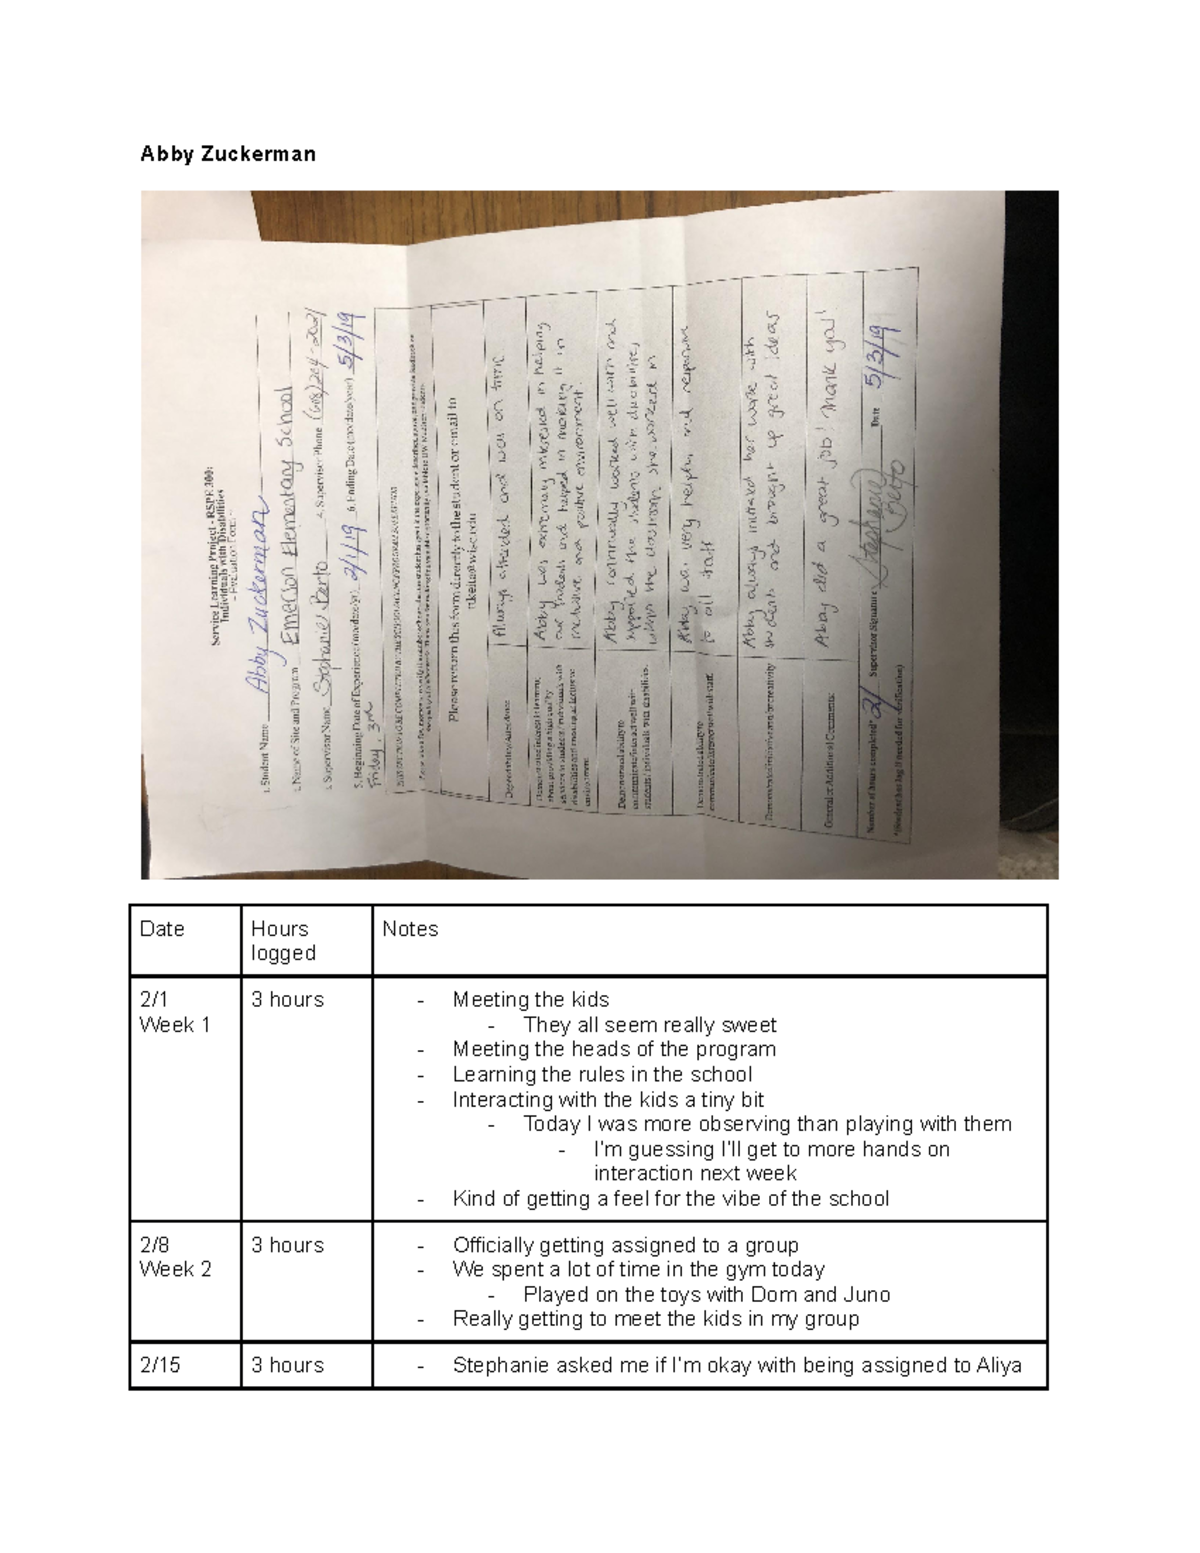 Abby Zuckerman
Service Learning Project - RSPE 300:
Individuals with Disabilities
- Evaluation Form -
1. Student Name Abby Zuckerman
2. Name of Site and Program Emerson Elementary School
3. Supervisor Name Stephanie 4. Supervisor Phone (608) 204-2021
5. Beginning Date of Experience (mo/date/yr) 2/1/19 6. Ending Date (mo/date/year) 5/3/19
Friday
Please return this form directly to the student or email to
Dependability/Attendance Always attended and was on time
Abby was extremely interested in helping
our students and helped in making it in
inclusive and positive environment.
Demonstrated ability to
communicate/interact well with
students/individuals with disabilities.
Abby continually worked well with and
supported the students with disabilities,
within the classroom she worked in
Demonstrated ability to
communicate/interact with staff.
Abby was very helpful and responsive
to all staff
Demonstrated initiative and/or creativity
Abby always initiated her work with
students and brought up great ideas
General or Additional Comments:
Abby did a great job! Thank you!
Number of hours completed* 21 Supervisor Signature Stephanie Date 5/3/19
*(Student has log if needed for verification)
Date
Hours
logged
Notes
2/1
Week 1
3 hours
- Meeting the kids
- They all seem really sweet
- Meeting the heads of the program
- Learning the rules in the school
- Interacting with the kids a tiny bit
- Today I was more observing than playing with them
- I'm guessing I'll get to more hands on
interaction next week
- Kind of getting a feel for the vibe of the school
2/8
Week 2
3 hours
- Officially getting assigned to a group
- We spent a lot of time in the gym today
- Played on the toys with Dom and Juno
- Really getting to meet the kids in my group
2/15
3 hours
- Stephanie asked me if I'm okay with being assigned to Aliya